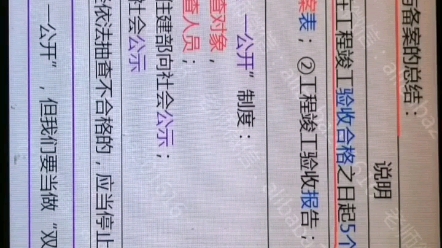 与备案的总结：
说明
在工程竣工验收合格之日起5个
案表；②工程竣工验收报告；
一公开”制度：
查对象，
查人员；
住建部向社会公示；
社会公示
依法抽查不合格的，应当停止
一公开”，但我们要当做“双